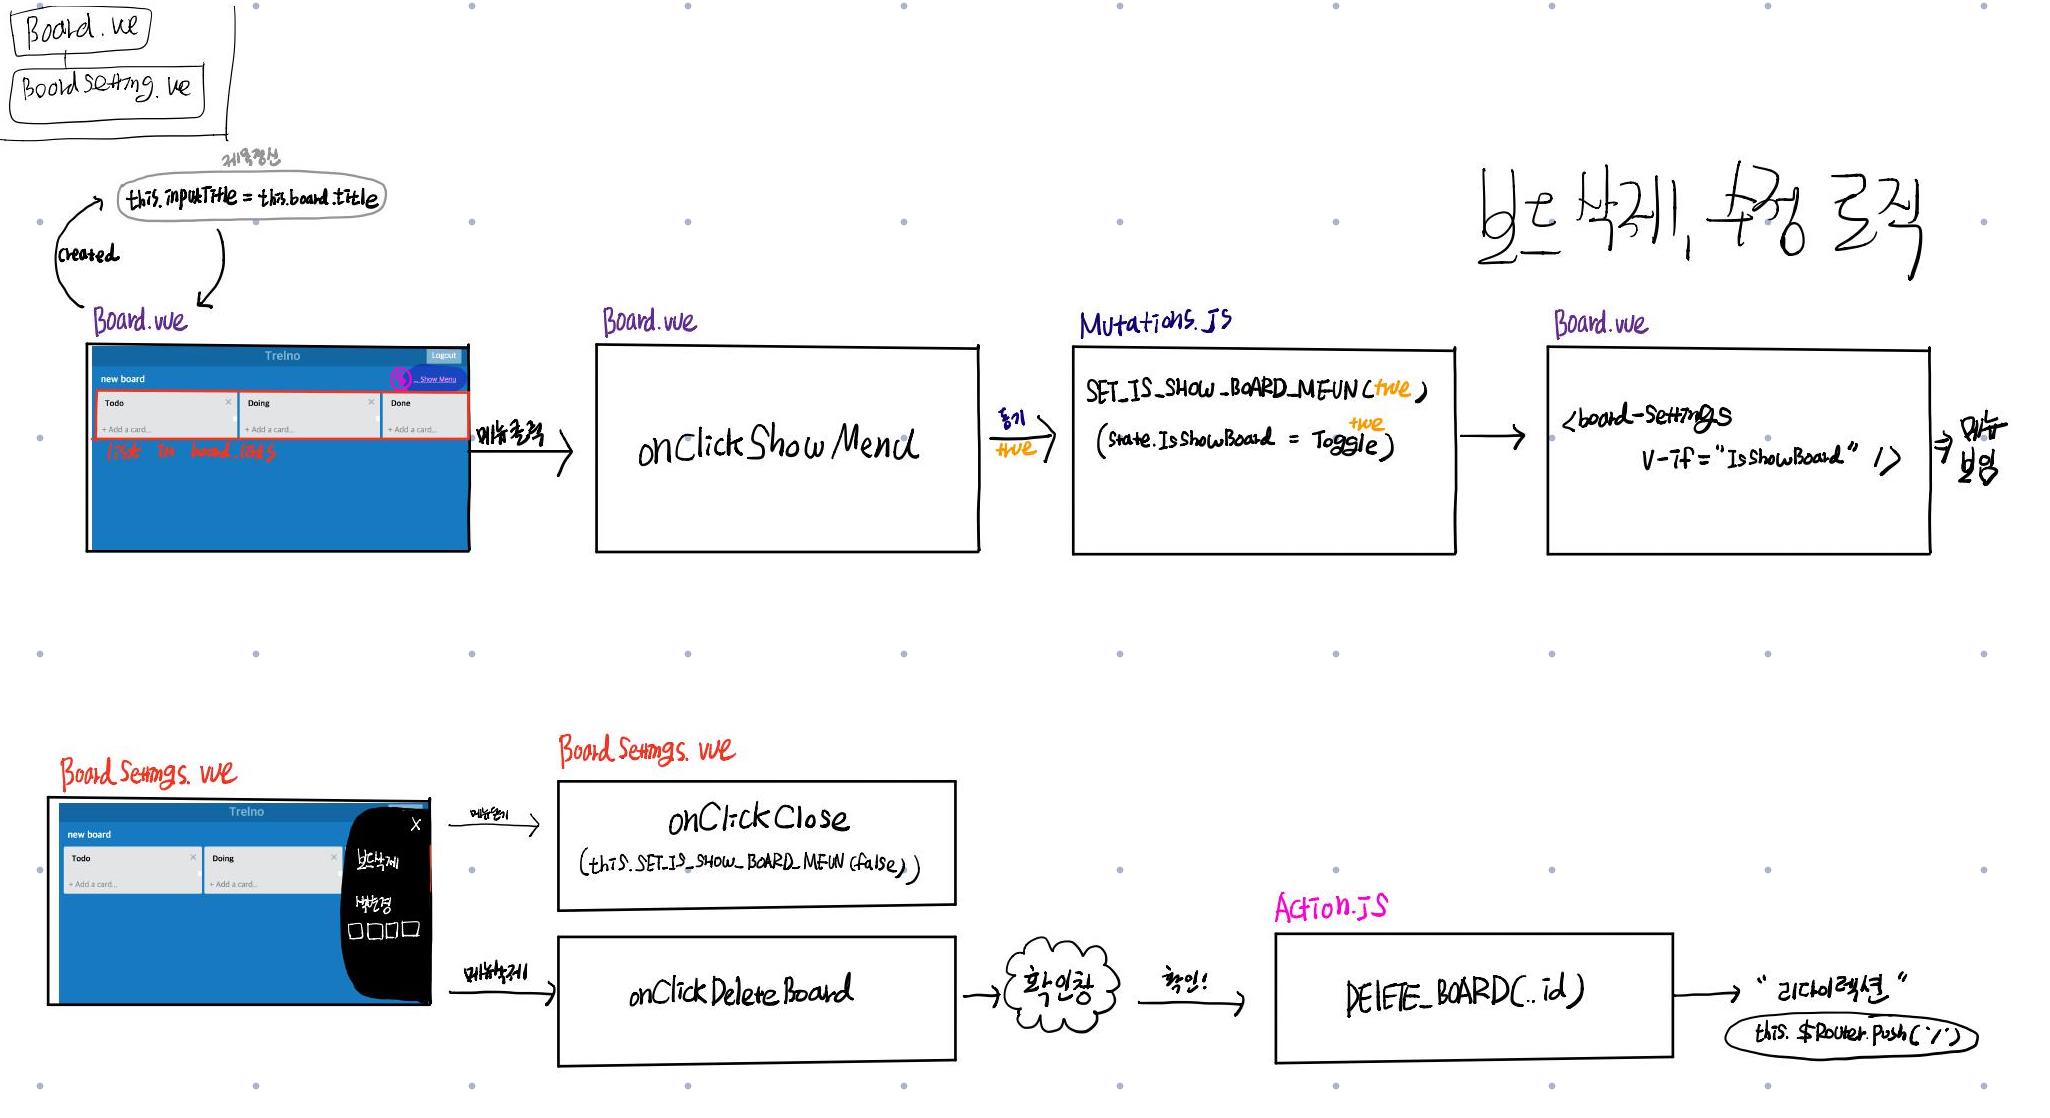 Board.vue
BoardSetting.ve
this.inputTitle = this.board.title
created
보드 삭제, 수정 로직
Board.vue
Trelno
Logout
new board
... Show Menu
Todo
×
Doing
×
Done
+ Add a card...
+ Add a card...
+ Add a card...
list in board.lists
메뉴클릭
Board.vue
onClickShowMenu
동기
true
Mutations.JS
SET_IS_SHOW_BOARD_MEUN(true)
true
(state.IsShowBoard = Toggle)
Board.vue
<board-settings
v-if="IsShowBoard" />
메뉴
보임
BoardSettings.vue
Trelno
new board
Todo
×
Doing
×
+ Add a card...
+ Add a card...
X
보드삭제
색변경
메뉴닫기
BoardSettings.vue
onClickClose
(this.SET_IS_SHOW_BOARD_MEUN(false))
메뉴삭제
onClickDeleteBoard
확인창
확인!
Action.JS
DELETE_BOARD(..id)
"리다이렉션"
this.$Router.push('/')